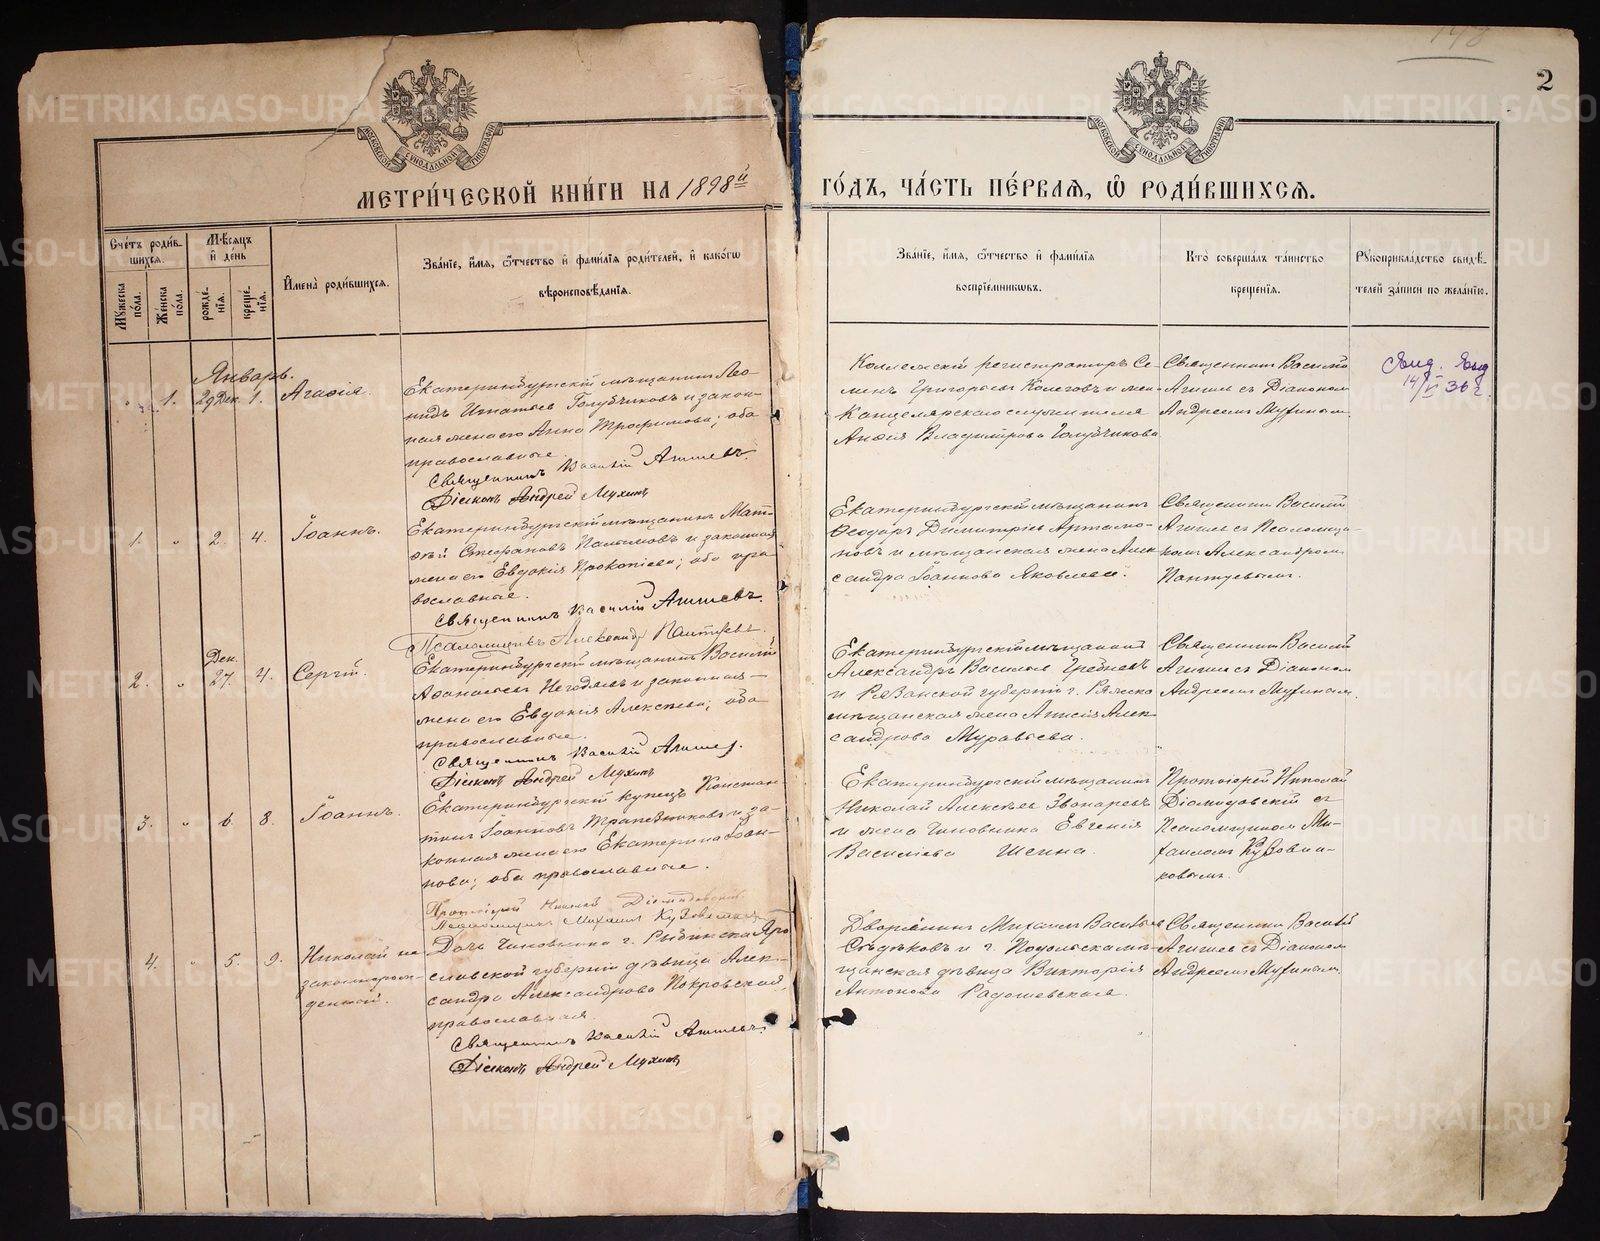 2
МЕТРИ́ЧЕСКОЙ КНИ́ГИ НА 1898й ГО́ДЪ, ЧА́СТЬ ПЕ́РВАѦ, Ѿ РОДИ́ВШИХСѦ.
Сче́тъ роди́в-
шихсѧ.
Мꙋ́жеска по́ла.
Же́нска по́ла.
Мѣ́сѧцъ
и҆ де́нь
рожде́нїѧ.
креще́нїѧ.
И҆мена̀ роди́вшихсѧ.
Зва́нїе, и҆́мѧ, ѻ҆́тчество и҆ фами́лїѧ роди́телей, и҆ како́гѡ
вѣроисповѣ́данїѧ.
Зва́нїе, и҆́мѧ, ѻ҆́тчество и҆ фами́лїѧ
воспрїе́мникѡвъ.
Кто̀ соверша́лъ та́инство
креще́нїѧ.
Рꙋкоприкла́дство свидѣ́-
телей за́писи по жела́нїю.
Январь.
1. 29 Дек. 1. Агафія.
Екатеринбургскій мѣщанинъ Лео-
нидъ Игнатьевъ Голубчиковъ и закон-
ная жена его Анна Трофимова; оба
православные.
Священникъ Василій Агишевъ.
Діаконъ Андрей Мухинъ
Коллежскій регистраторъ Се-
менъ Григорьевъ и жена
Канцелярскаго служителя
Владимірова Голубчикова
Священникъ Василій
Агишевъ съ Діакономъ
Андреемъ Мухинымъ.
14/I 36 г.
1. " 2. 4. Іоаннъ.
Екатеринбургскій мѣщанинъ Мат-
ѳѣй Стефановъ и законная
жена его Евдокія Прокопіева; оба пра-
вославные.
Священникъ Василій Агишевъ.
Псаломщикъ Александръ Пантуевъ.
Екатеринбургскій мѣщанинъ
Ѳеодоръ Димитріевъ Артамо-
новъ и мѣщанская жена Алек-
сандра Іоаннова Яковлева.
Священникъ Василій
Агишевъ съ Псаломщи-
комъ Александромъ
Пантуевымъ.
2. " Дек. 27. 4. Сергій.
Екатеринбургскій мѣщанинъ Василій
Аѳанасьевъ Негодяевъ и законная
жена его Евдокія Алексѣева; оба
православные.
Священникъ Василій Агишев.
Діаконъ Андрей Мухинъ
Екатеринбургскій мѣщанинъ
Александръ Васильевъ Гребневъ
и Рязанской губерніи г. Ряжска
мѣщанская жена Анисія Алек-
сандрова Муравьева.
Священникъ Василій
Агишевъ съ Діакономъ
Андреемъ Мухинымъ.
3. " 6. 8. Іоаннъ.
Екатеринбургскій купецъ Констан-
тинъ Іоанновъ Трапезниковъ и за-
конная жена его Екатерина Іоан-
нова; оба православные.
Протоіерей Николай Діомидовскій
Псаломщикъ Михаилъ
Екатеринбургскій мѣщанинъ
Николай Алексѣевъ Звонаревъ
и жена чиновника Евгенія
Василіева Шеина.
Протоіерей Николай
Діомидовскій съ
Псаломщикомъ Ми-
хаиломъ
4. " 5. 9. Николай не-
законорож-
денный.
Дочь чиновника г. Рыбинска Яро-
славской губерніи дѣвица Алек-
сандра Александрова Покровская,
православная.
Священникъ Василій Агишевъ.
Діаконъ Андрей Мухинъ
Дворянинъ Михаилъ Васильевъ
и г. Подольска мѣ-
щанская дѣвица Викторія
Антонова Радошевская.
Священникъ Василій
Агишевъ съ Діакономъ
Андреемъ Мухинымъ.
METRIKI.GASO-URAL.RU